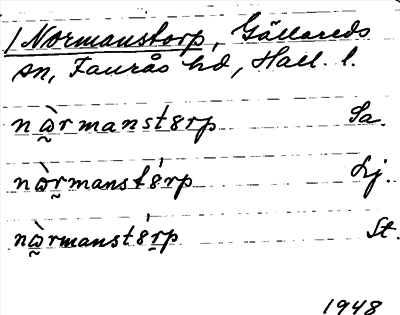 / Normanstorp, Gällareds
sn, Faurås hd, Hall. l.
nὼ̰rmanst8rp Sa.
nὼ̰r̰manst8́rp Lj.
nὼ̰rmanst8́r̠p St.
1948